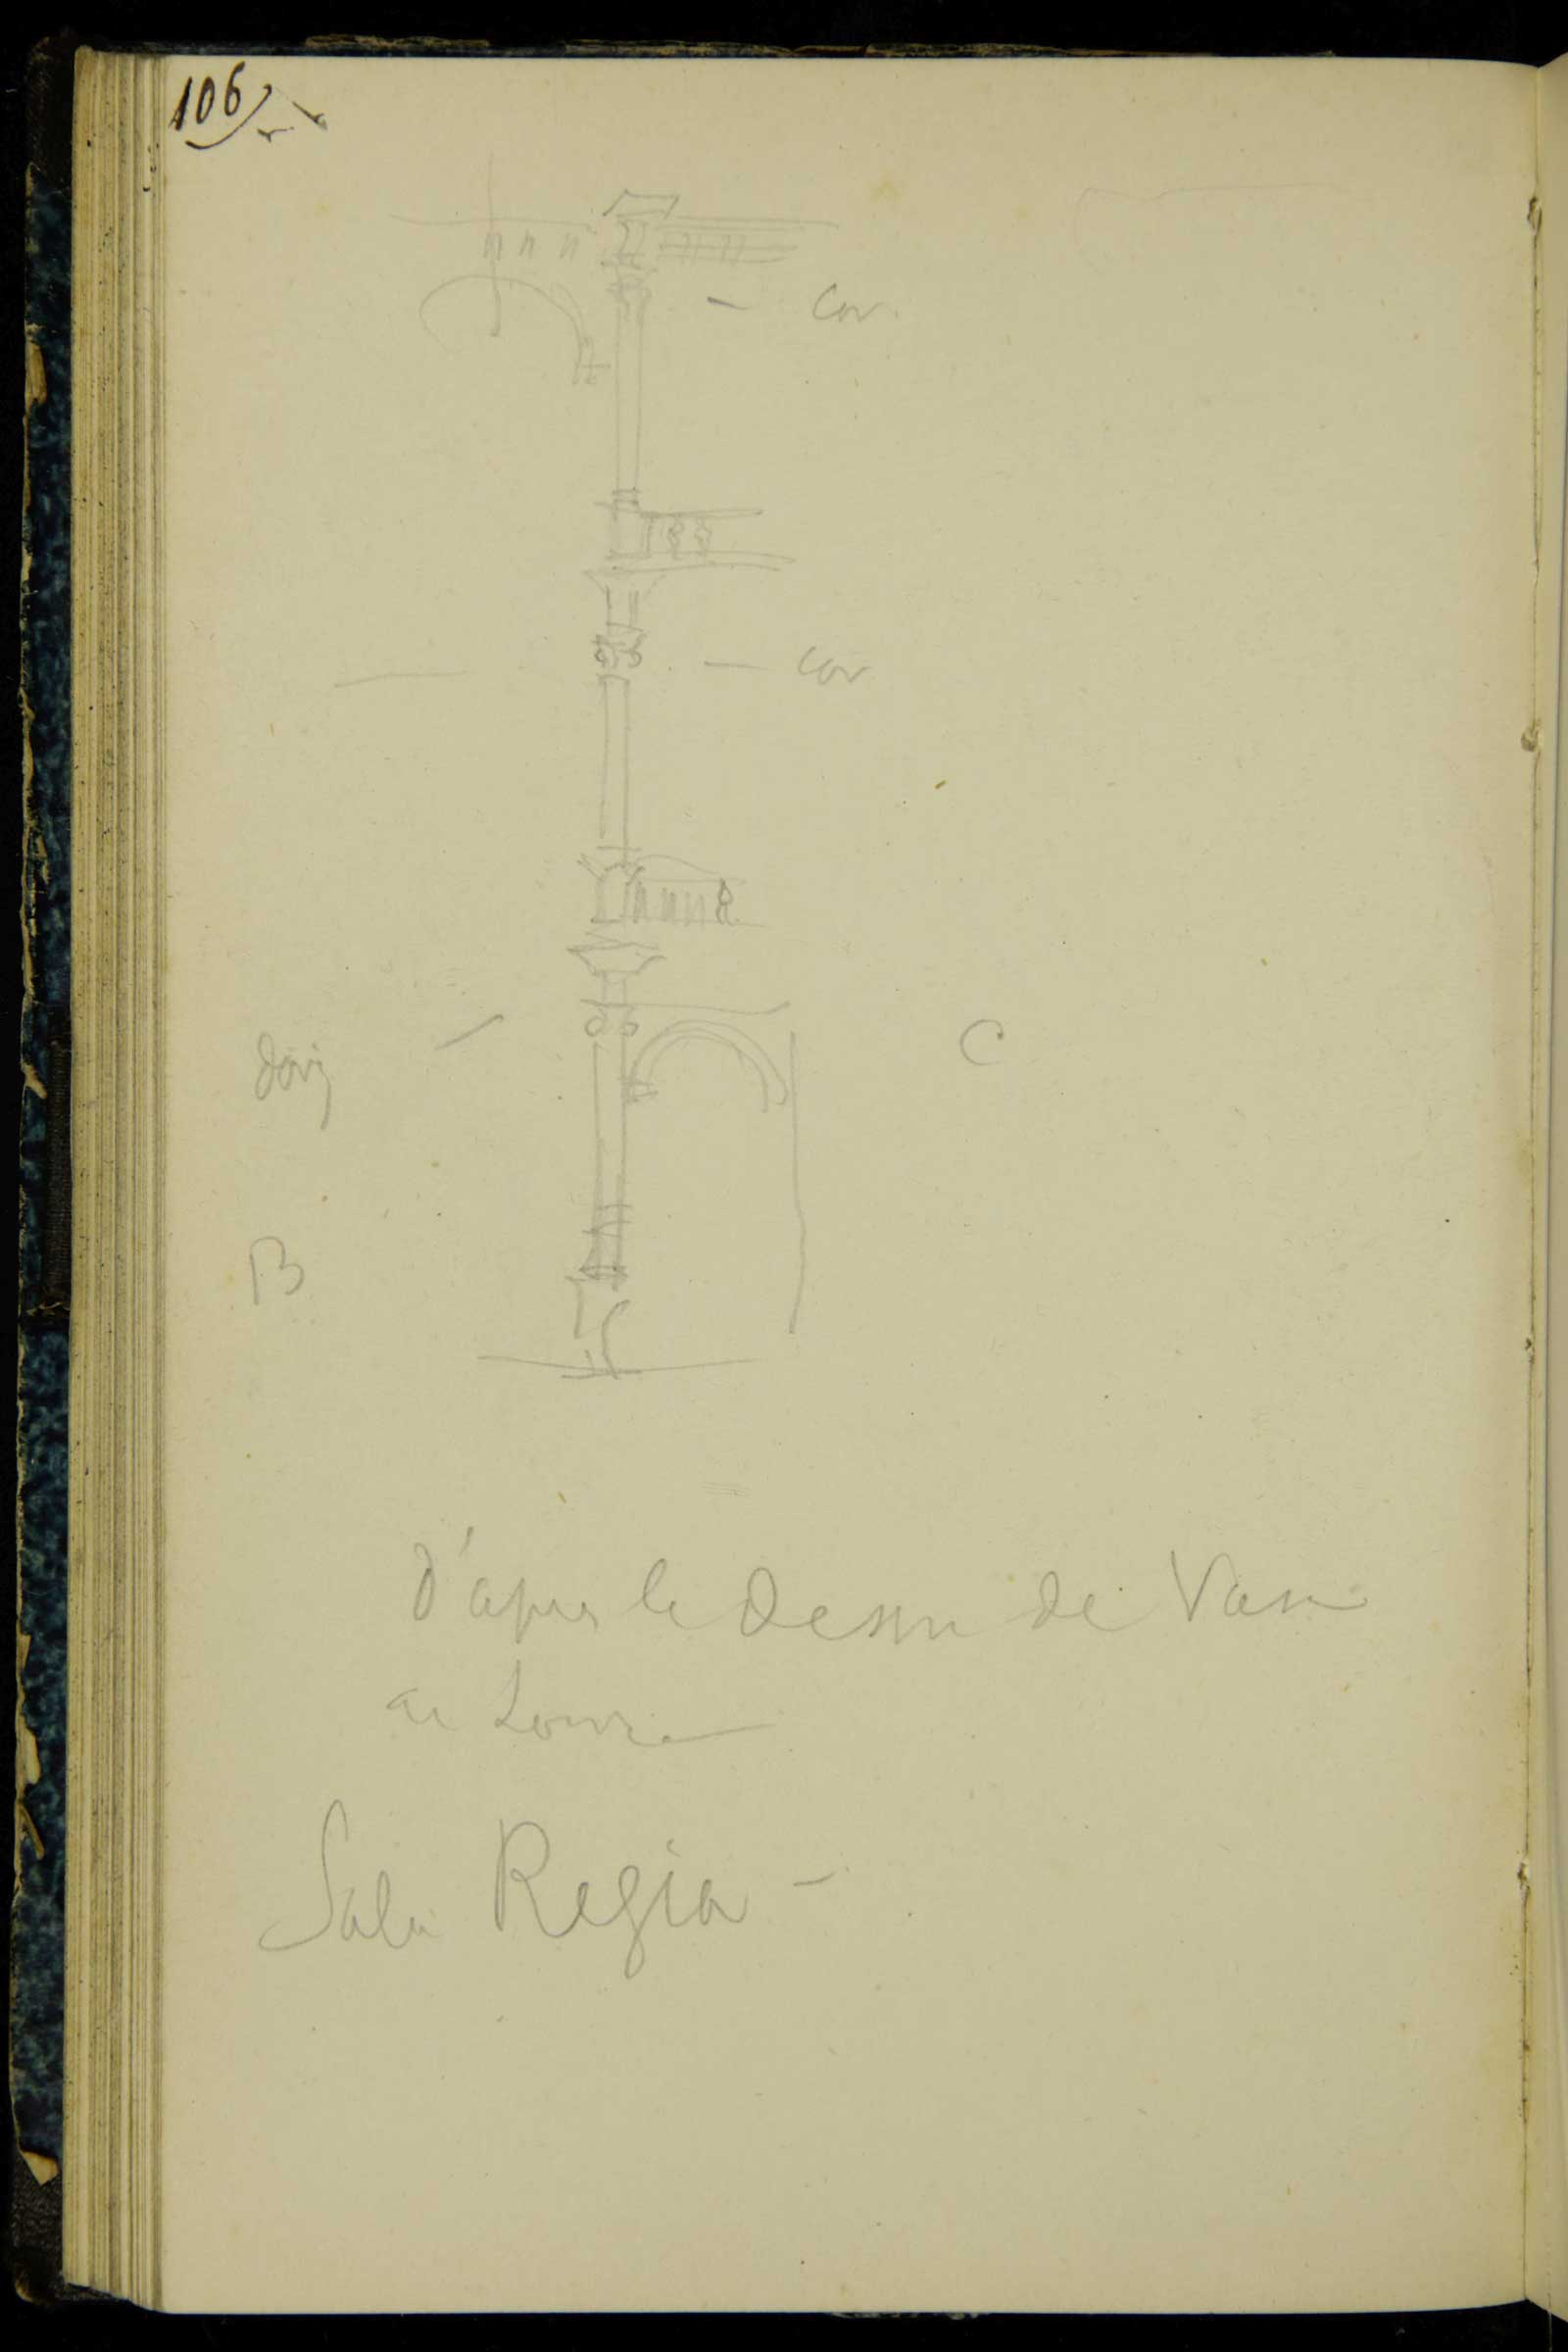 106
Cor.
cor
doriq
C
B
D'après le dessin de Vasari
au Louvre
Sala Regia -